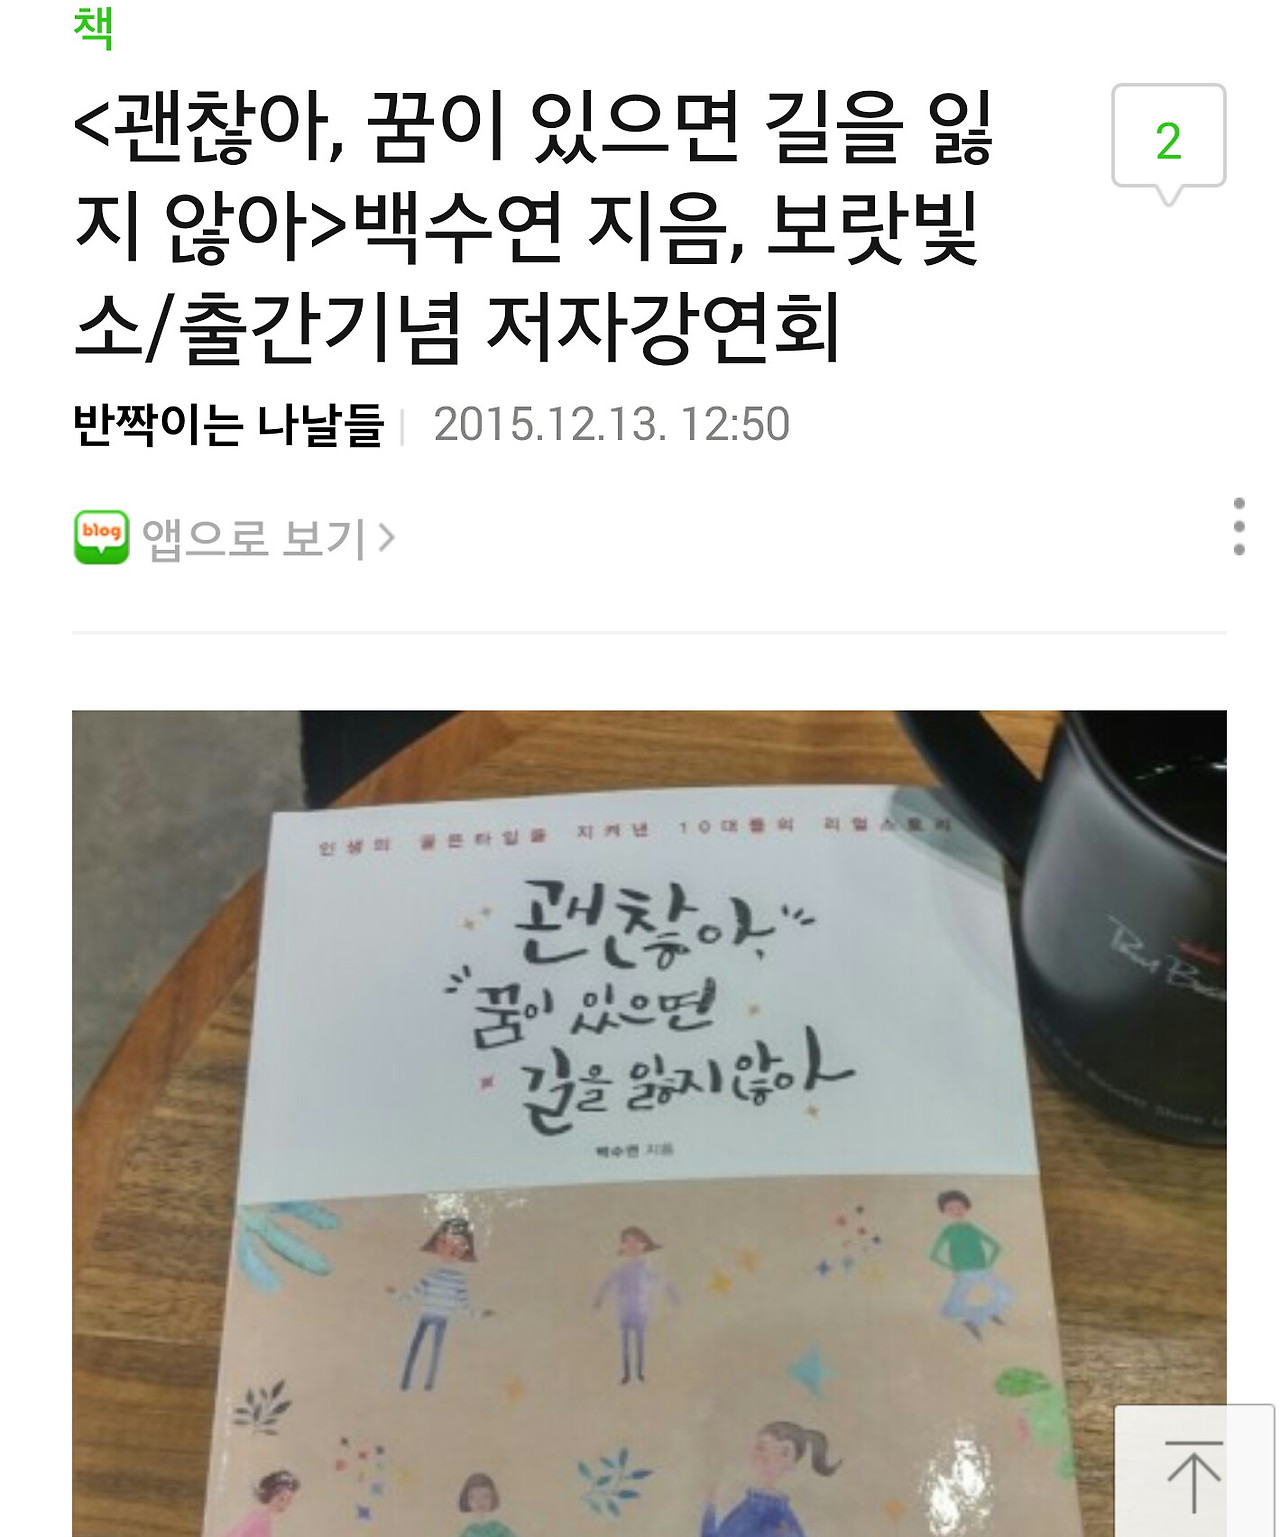 책
<괜찮아, 꿈이 있으면 길을 잃
지 않아>백수연 지음, 보랏빛
소/출간기념 저자강연회
2
반짝이는 나날들
2015.12.13. 12:50
blog
앱으로 보기
인생의 골든타임을 지켜낸 10대들의 리얼스토리
괜찮아,
꿈이 있으면
길을 잃지 않아
백수연 지음